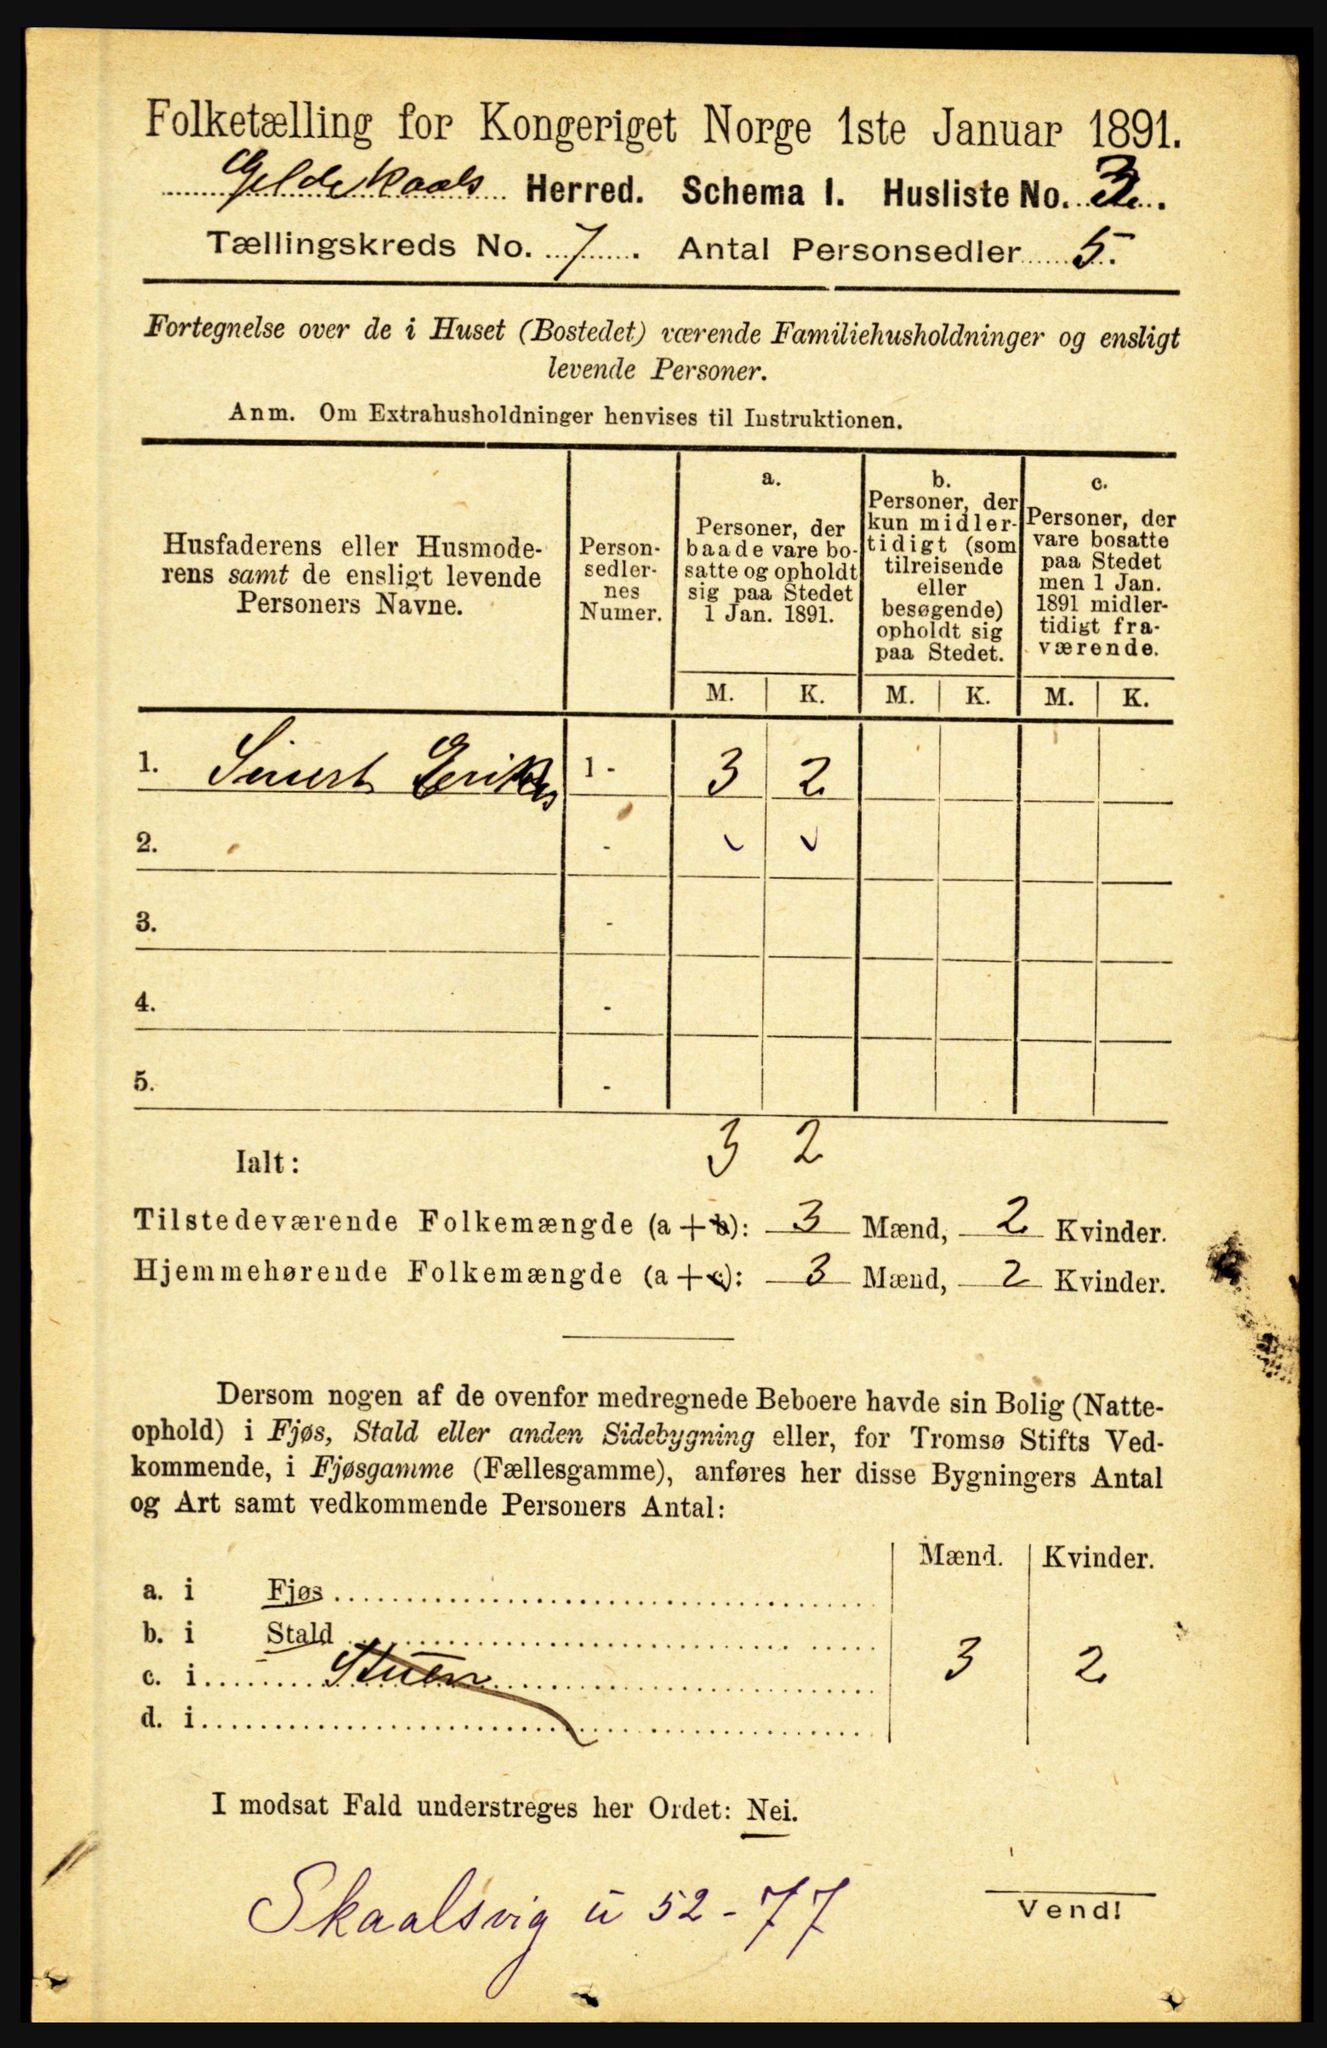 Folketælling for Kongeriget Norge 1ste Januar 1891.
Gildeskaals Herred. Schema I. Husliste No. 3.
Tællingskreds No. 7. Antal Personsedler 5.
Fortegnelse over de i Huset (Bostedet) værende Familiehusholdninger og ensligt
levende Personer.
Anm. Om Extrahusholdninger henvises til Instruktionen.
Husfaderens eller Husmode-
rens samt de ensligt levende
Personers Navne.
Person-
sedler-
nes
Numer.
a.
Personer, der
baade vare bo-
satte og opholdt
sig paa Stedet
1 Jan. 1891.
b.
Personer, der
kun midler-
tidigt (som
tilreisende
eller
besøgende)
opholdt sig
paa Stedet.
c.
Personer, der
vare bosatte
paa Stedet
men 1 Jan.
1891 midler-
tidigt fra-
værende.
M. K. M. K. M. K.
1. Sivert Eriks 1 - 3 2
2. -
3. -
4. -
5. -
Ialt: 3 2
Tilstedeværende Folkemængde (a + b): 3 Mænd, 2 Kvinder.
Hjemmehørende Folkemængde (a + c): 3 Mænd, 2 Kvinder.
Dersom nogen af de ovenfor medregnede Beboere havde sin Bolig (Natte-
ophold) i Fjøs, Stald eller anden Sidebygning eller, for Tromsø Stifts Ved-
kommende, i Fjøsgamme (Fællesgamme), anføres her disse Bygningers Antal
og Art samt vedkommende Personers Antal:
Mænd. Kvinder.
a. i Fjøs
b. i Stald
c. i Stuen 3 2
d. i
I modsat Fald understreges her Ordet: Nei.
Skaalsvig u 52-77
Vend!